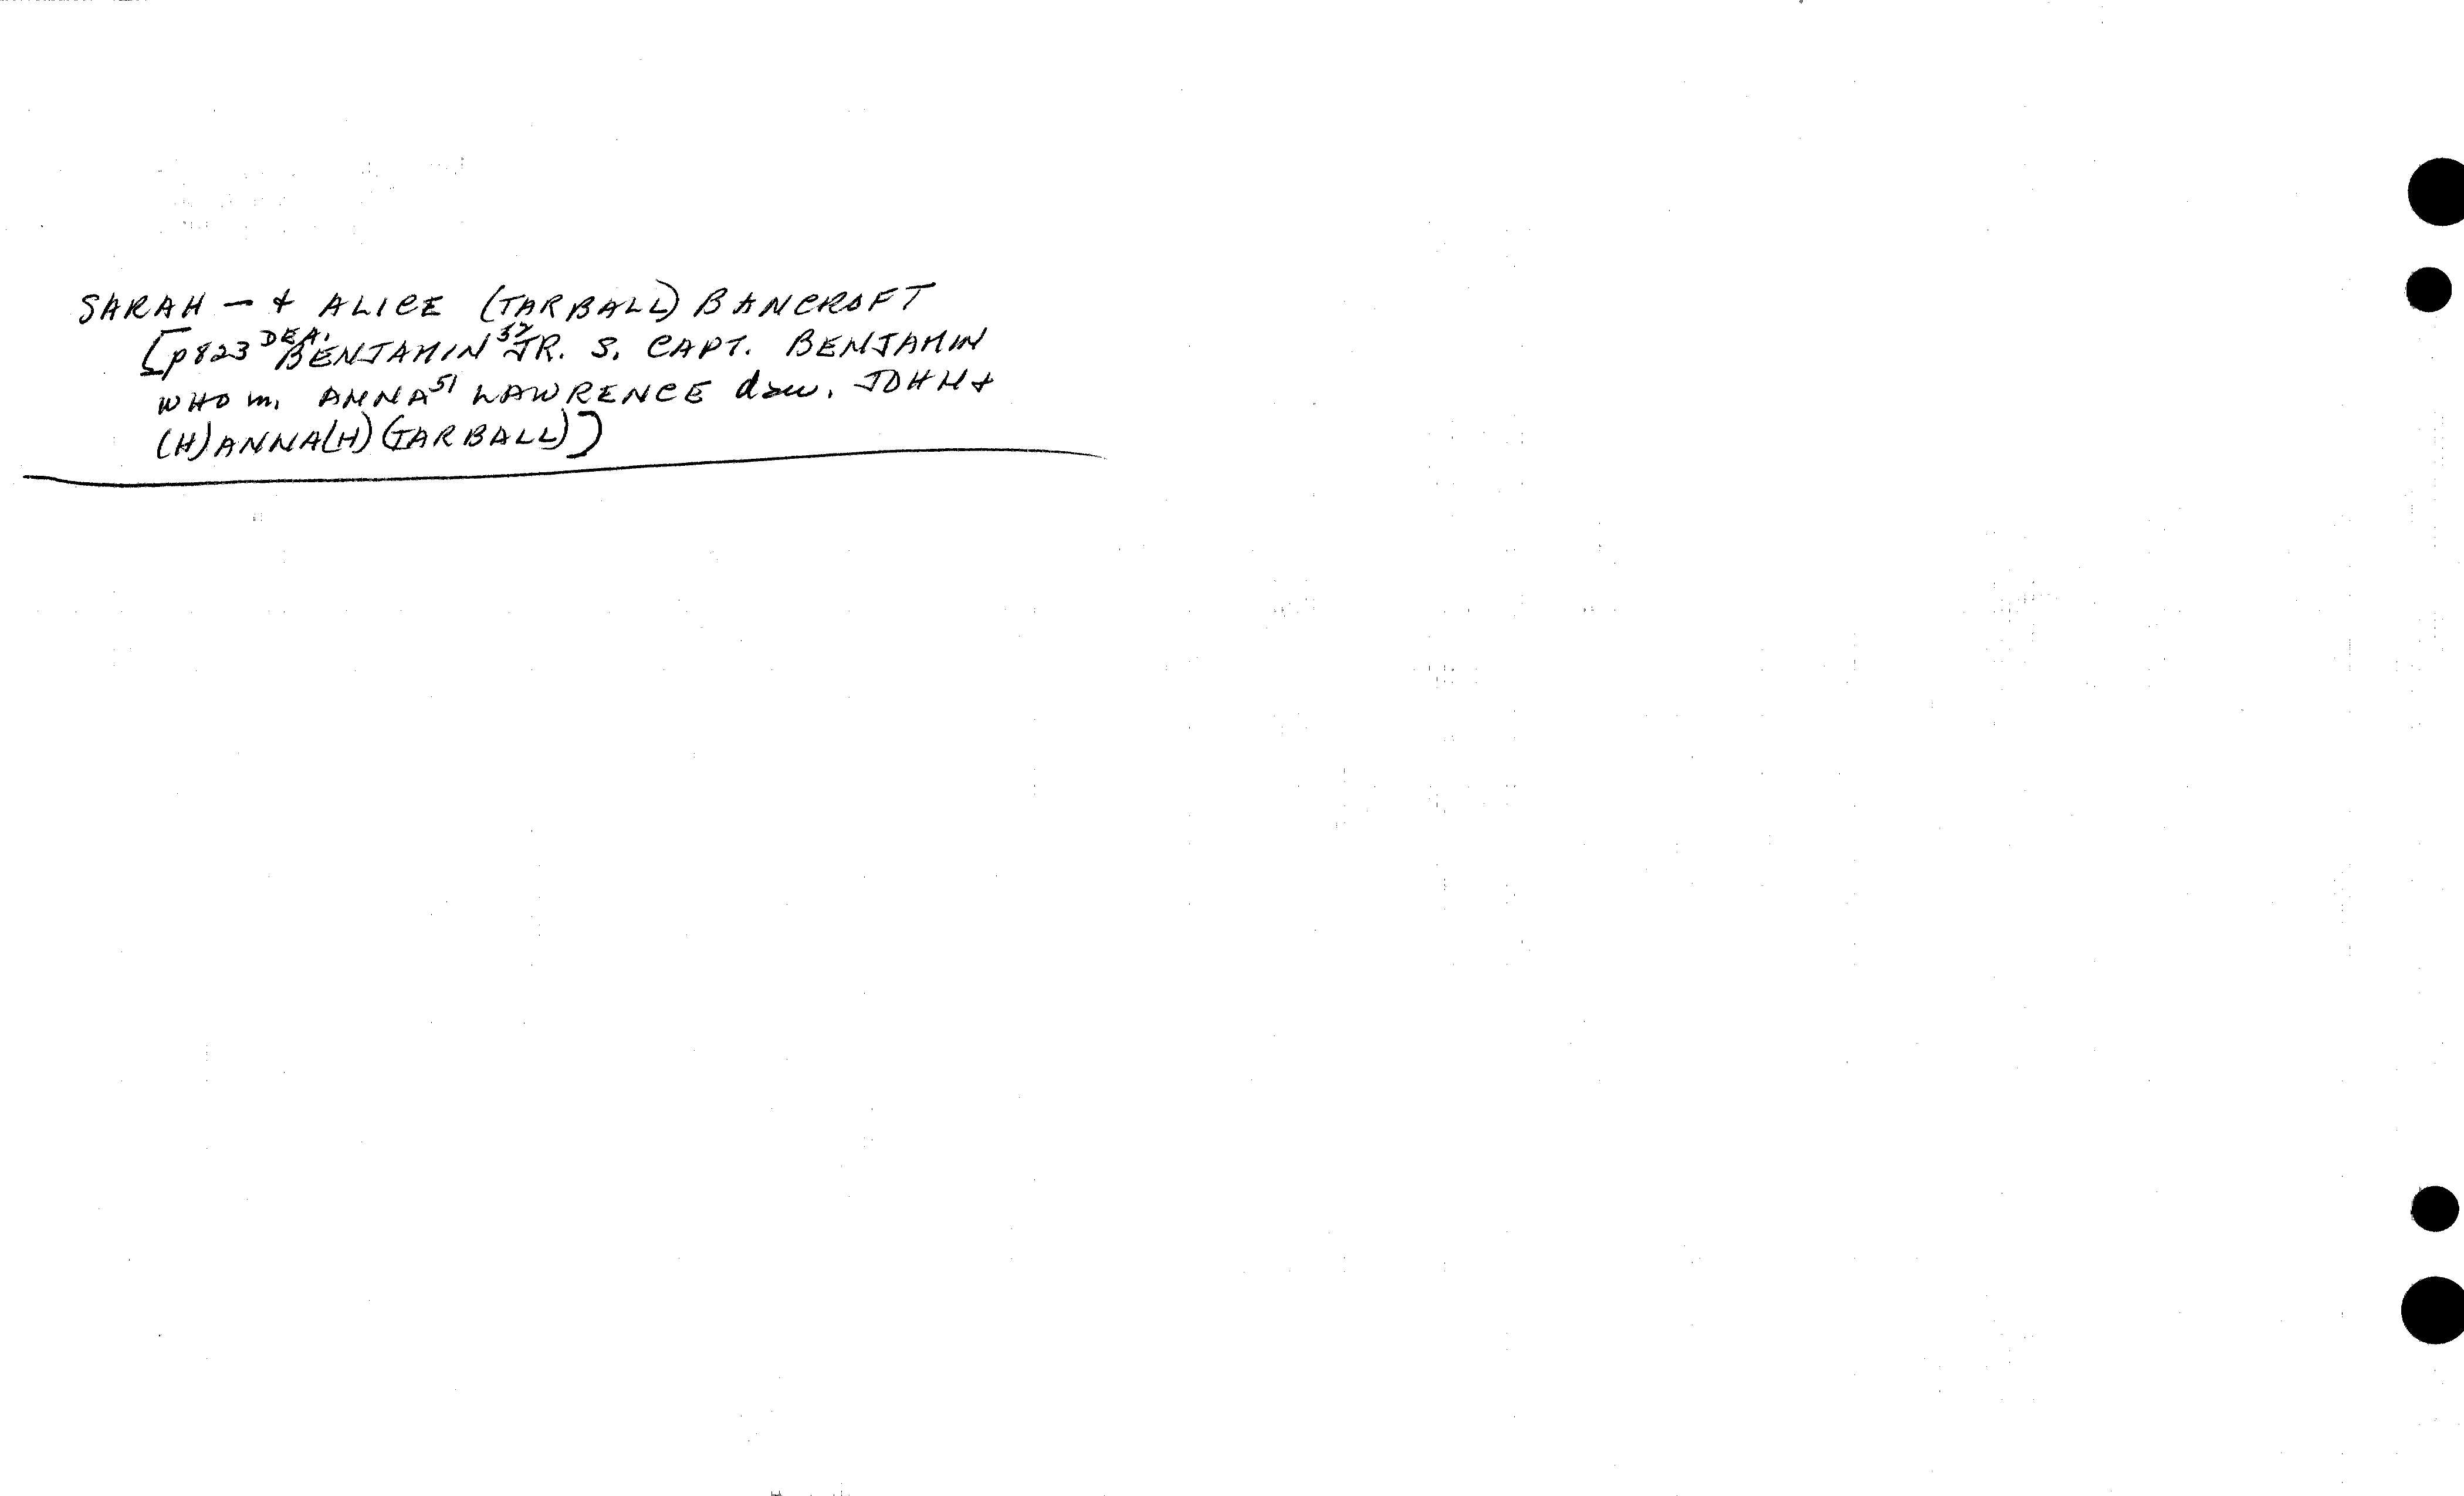 SARAH — + ALICE (TARBALL) BANCROFT
[p823 DEA. BENJAMIN JR. S. CAPT. BENJAMIN
WHO m. ANNA 51 LAWRENCE dau. JOHN +
(H)ANNA(H) (TARBALL)]